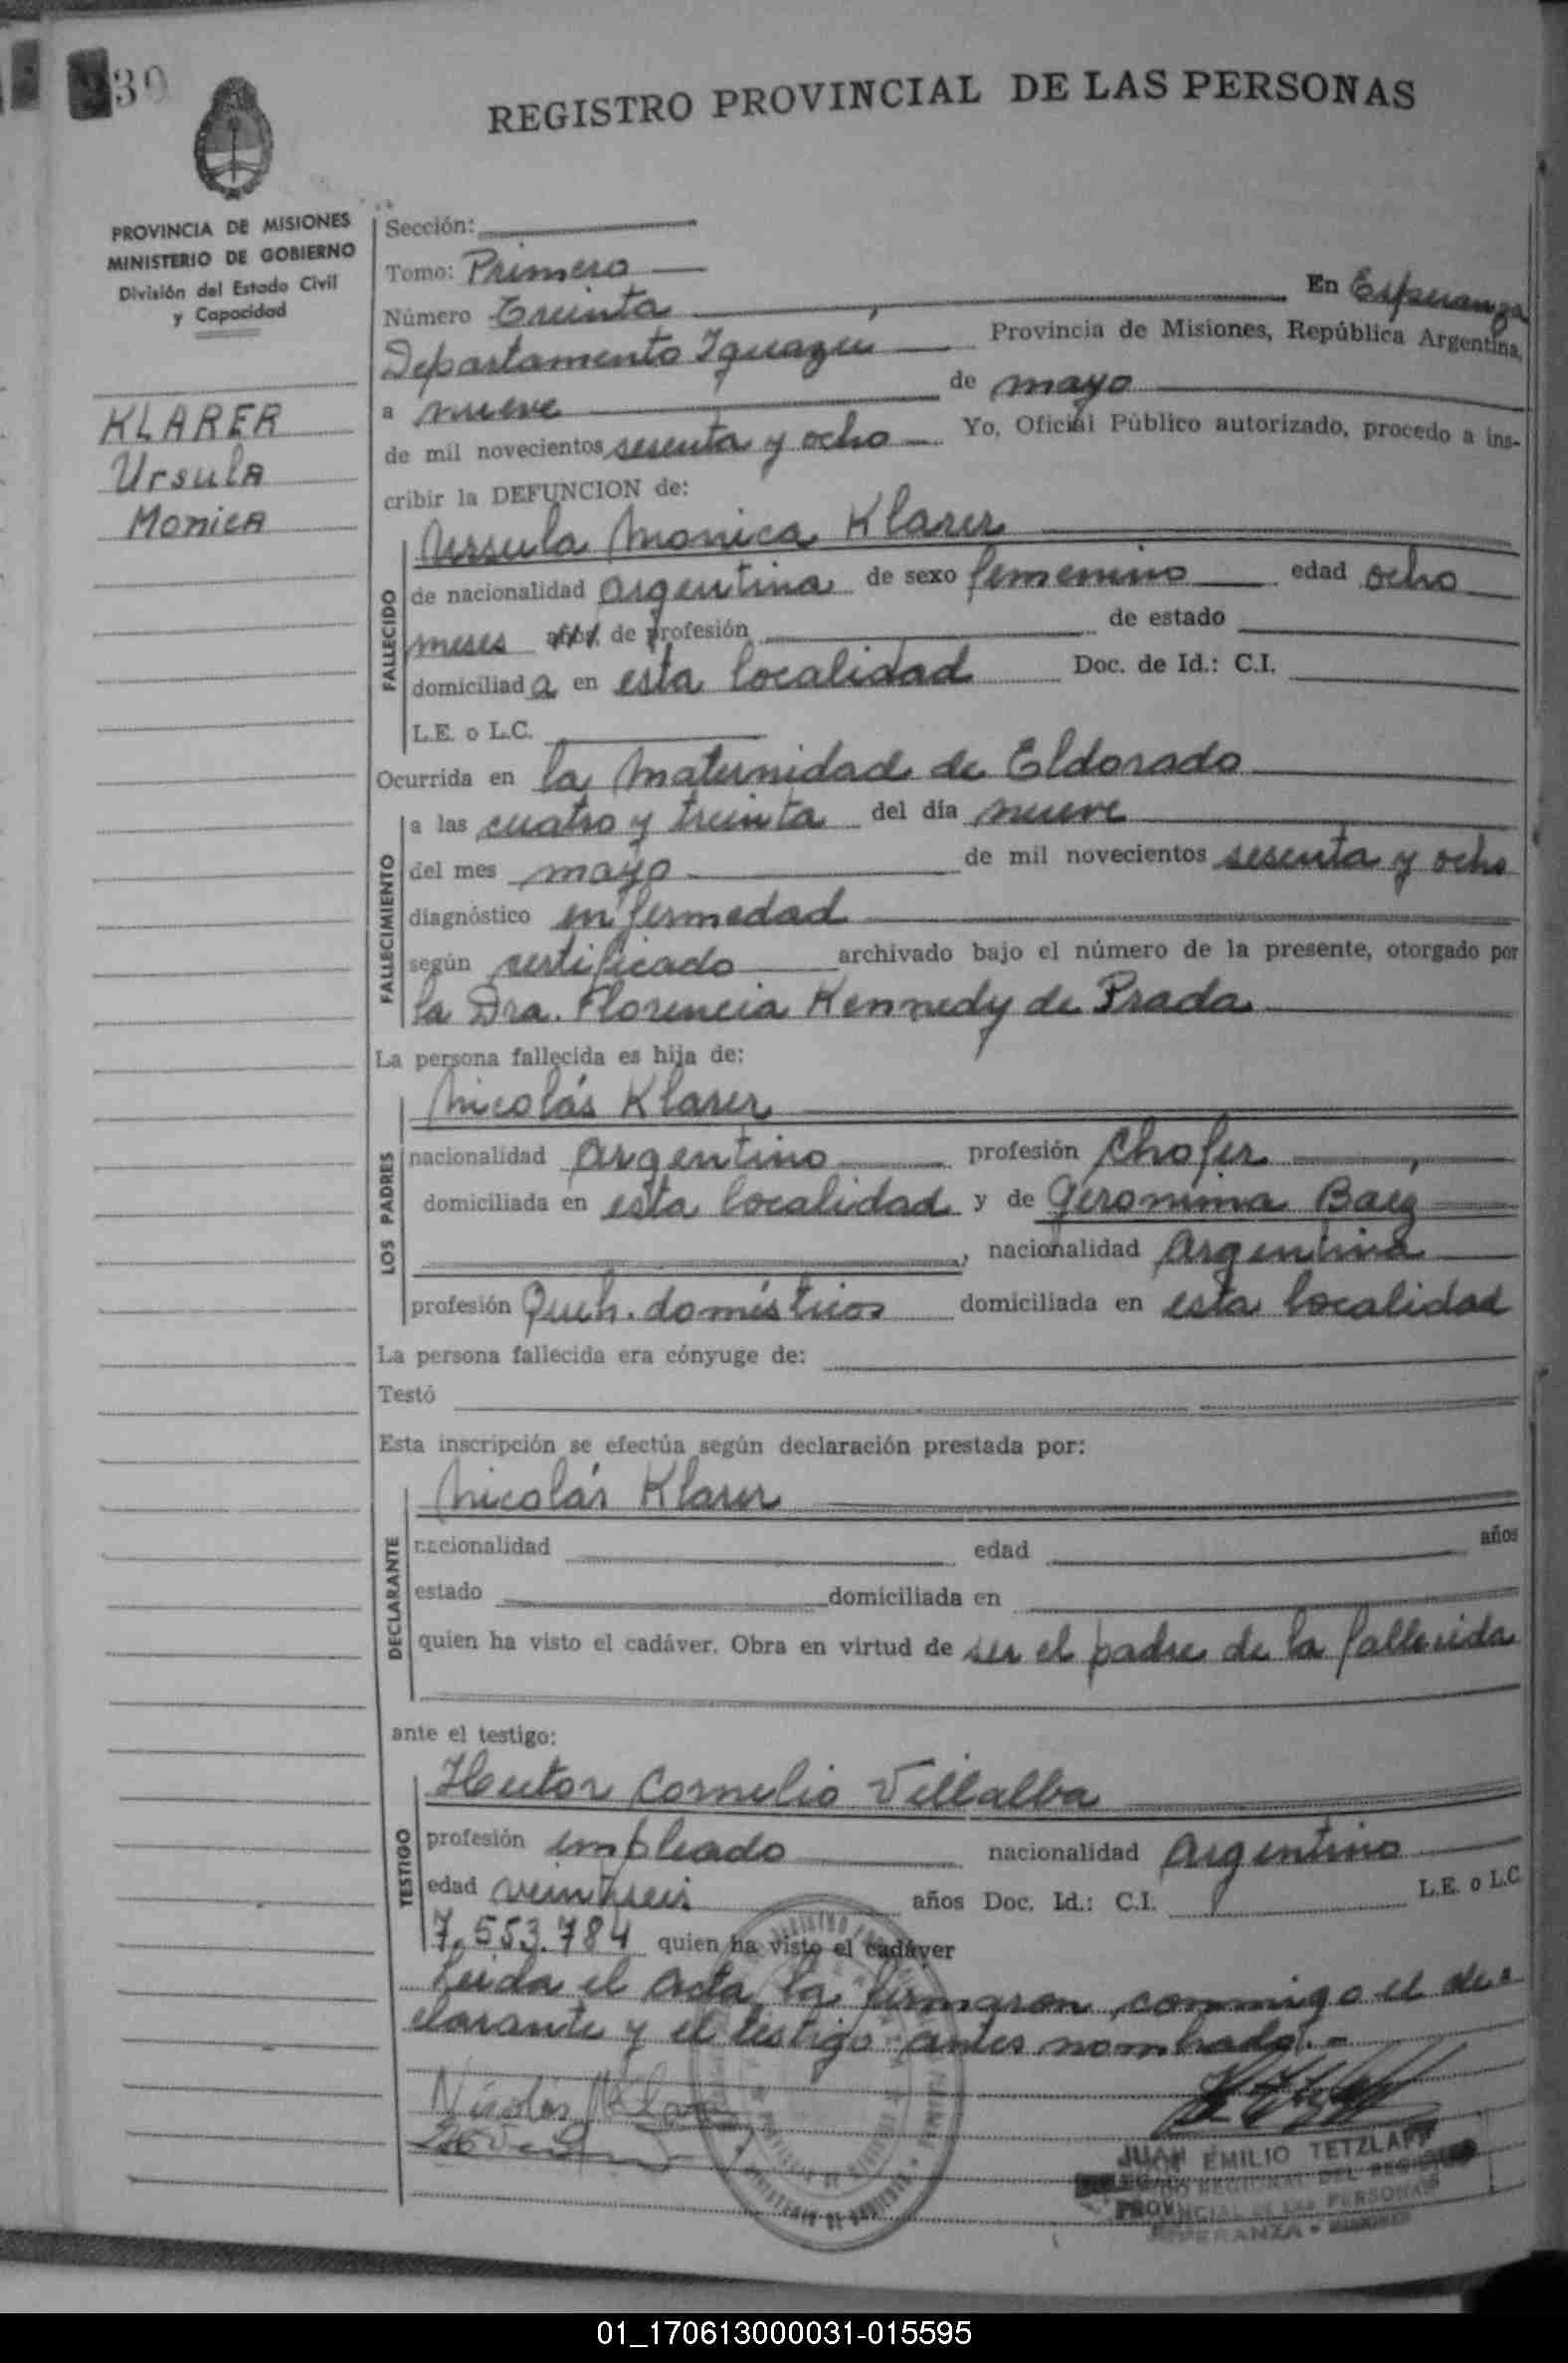 30
REGISTRO PROVINCIAL DE LAS PERSONAS
PROVINCIA DE MISIONES
MINISTERIO DE GOBIERNO
División del Estado Civil
y Capacidad
KLARER
Ursula
Monica
Sección:
Tomo: Primero
Número Treinta En Esperanza
Departamento Iguazu Provincia de Misiones, República Argentina,
a nueve de mayo
de mil novecientos sesenta y ocho Yo, Oficial Público autorizado, procedo a ins-
cribir la DEFUNCION de:
Ursula Monica Klarer
FALLECIDO
de nacionalidad argentina de sexo femenino edad ocho
meses años de profesión de estado
domiciliada en esta localidad Doc. de Id.: C.I.
L.E. o L.C.
Ocurrida en la Maternidad de Eldorado
FALLECIMIENTO
a las cuatro y treinta del día nueve
del mes mayo de mil novecientos sesenta y ocho
diagnóstico enfermedad
según certificado archivado bajo el número de la presente, otorgado por
la Dra. Florencia Kennedy de Prada
La persona fallecida es hija de:
LOS PADRES
Nicolás Klarer
nacionalidad Argentino profesión Chofer,
domiciliada en esta localidad y de Geronima Baez
, nacionalidad Argentina
profesión Queh. domésticos domiciliada en esta localidad
La persona fallecida era cónyuge de:
Testó
Esta inscripción se efectúa según declaración prestada por:
DECLARANTE
Nicolás Klarer
nacionalidad edad años
estado domiciliada en
quien ha visto el cadáver. Obra en virtud de ser el padre de la fallecida
ante el testigo:
TESTIGO
Hector Cornelio Villalba
profesión empleado nacionalidad Argentino
edad veintiseis años Doc. Id.: C.I. L.E. o L.C.
7.553.784 quien ha visto el cadáver
Leida el acta la firmaron conmigo el de-
clarante y el testigo antes nombrado.-
Nicolás Klarer
JUAN EMILIO TETZLAFF
REGIONAL DEL REGISTRO
PROVINCIAL DE LAS PERSONAS
ESPERANZA - MISIONES
01_170613000031-015595